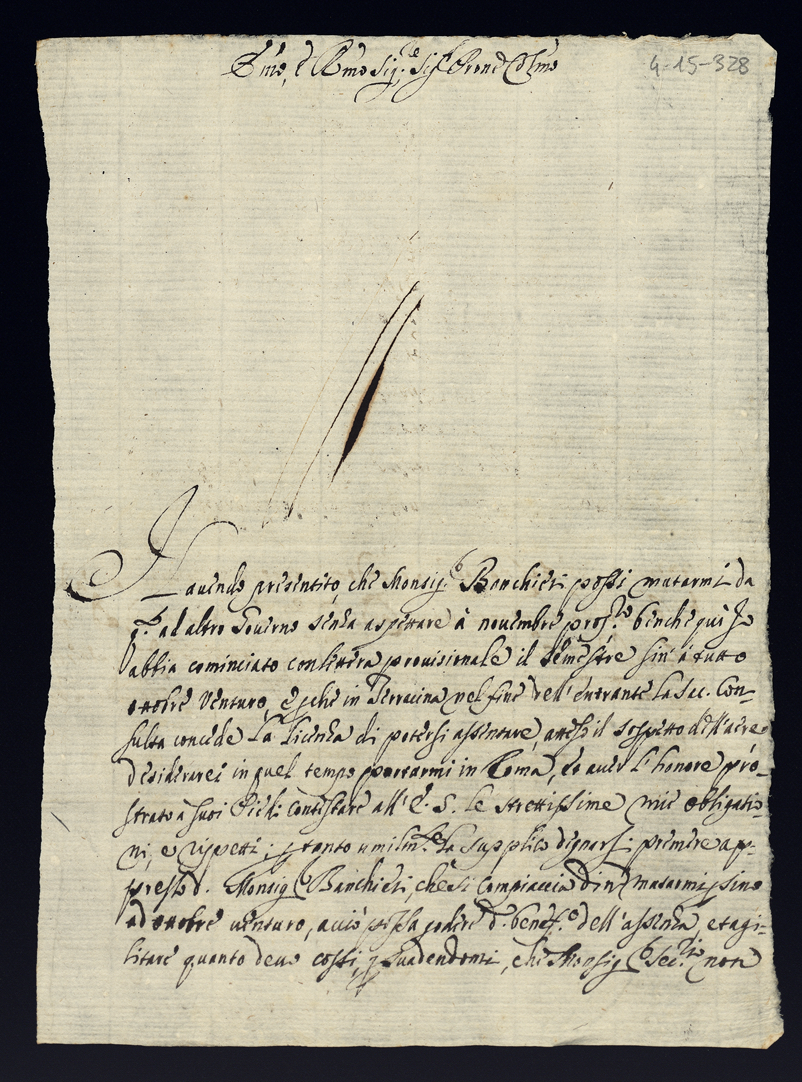 Em̃o, e Rm̃o Sig.re Sig.r Pron̄e Col̃mo
4-15-328
Hauendo presentito, che Monsig.r Banchieri possi mutarmi da
q.to ad altro Gouerno senza aspettare à nouembre pros.mo benche qui Io
abbia cominciato con lettera prouisionale il semestre sin' à tutto
ottobre Venturo, e che in Terracina nel fine dell' entrante la Sac. Con-
sulta concede la licenza di potersi assentare, atteso il sospetto dell' aere
desiderarei in quel tempo portarmi in Roma, et auer l' honore pro-
strato a suoi Piedi contestare all' E. S. le strettissime mie obligatio-
ni, e rispetti; p tanto umilm.te la supplico dignarsi premere ap-
presso d. Monsig.r Banchieri, che si compiaccia di n mutarmi p sino
ad ottobre uenturo, acciò possa godere d.o benef.o dell' assenza, et agi-
litare quanto deuo costi, p suadendomi, che Monsig.r Sec.rio non